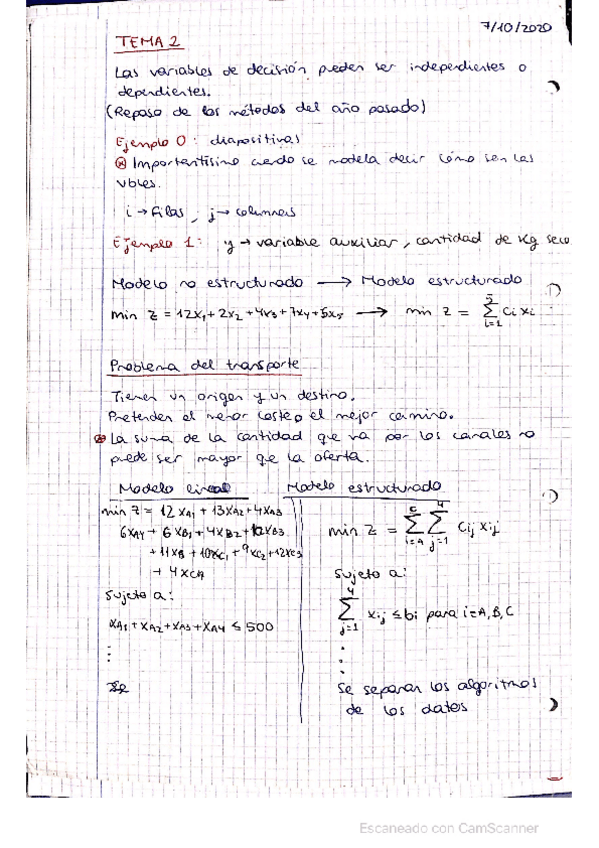 7/10/2020
TEMA 2
Las variables de decisión pueden ser independientes o
dependientes.
(Repaso de los métodos del año pasado)
Ejemplo 0: diapositivas
Importantísimo cuando se modela decir cómo son las
vbles.
i → filas, j → columnas
Ejemplo 1: y → variable auxiliar, cantidad de Kg seco
Modelo no estructurado → Modelo estructurado
min z = 12x₁ + 2x₂ + 4x₃ + 7x₄ + 5x₅ → min z = 5 Σ i=1 ci xi
Problema del transporte
Tienen un origen y un destino.
Pretenden el menor coste o el mejor camino.
La suma de la cantidad que va por los canales no
puede ser mayor que la oferta.
Modelo lineal
min z = 12 xA1 + 13xA2 + 4xA3
6xA4 + 6xB1 + 4xB2 + 10xB3
+ 11xB + 10xC1 + 9xC2 + 12xC3
+ 4xC4
Sujeto a:
xA1 + xA2 + xA3 + xA4 ≤ 500
Modelo estructurado
min z = C Σ i=A 4 Σ j=1 cij xij
Sujeto a:
4 Σ j=1 xij ≤ bi para i=A,B,C
Se separan los algoritmos
de los datos
Escaneado con CamScanner